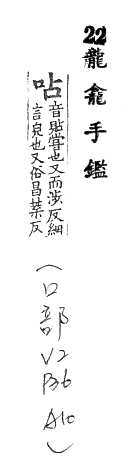 22龍龕手鑑
呫
音貼甞也又而涉反細
言皃也又俗昌葉反
(口部 V2 P36 A10)